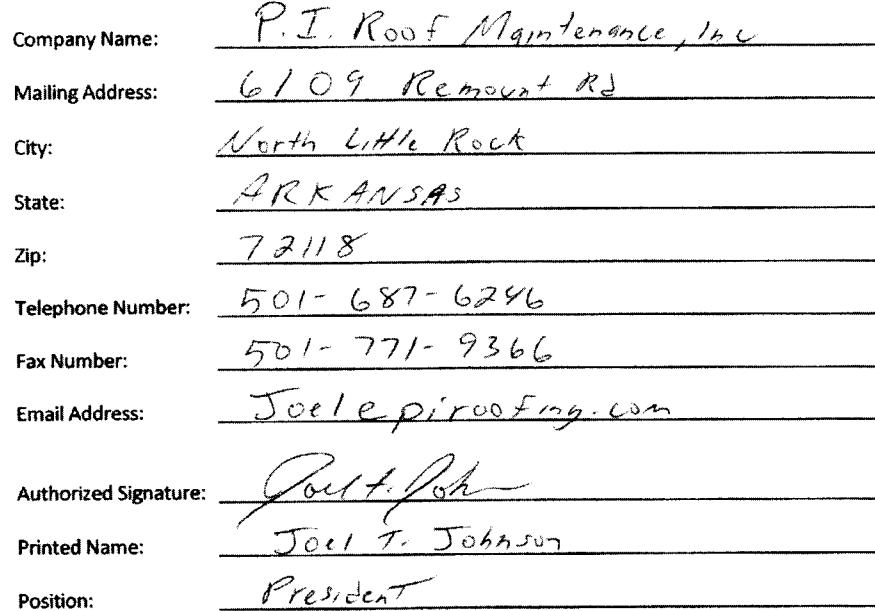 Company Name: P.I. Roof Maintenance, Inc
Mailing Address: 6109 Remount Rd
City: North Little Rock
State: ARKANSAS
Zip: 72118
Telephone Number: 501-687-6246
Fax Number: 501-771-9366
Email Address: Joel@piroofing.com
Authorized Signature: Joel T. John
Printed Name: Joel T. Johnson
Position: President